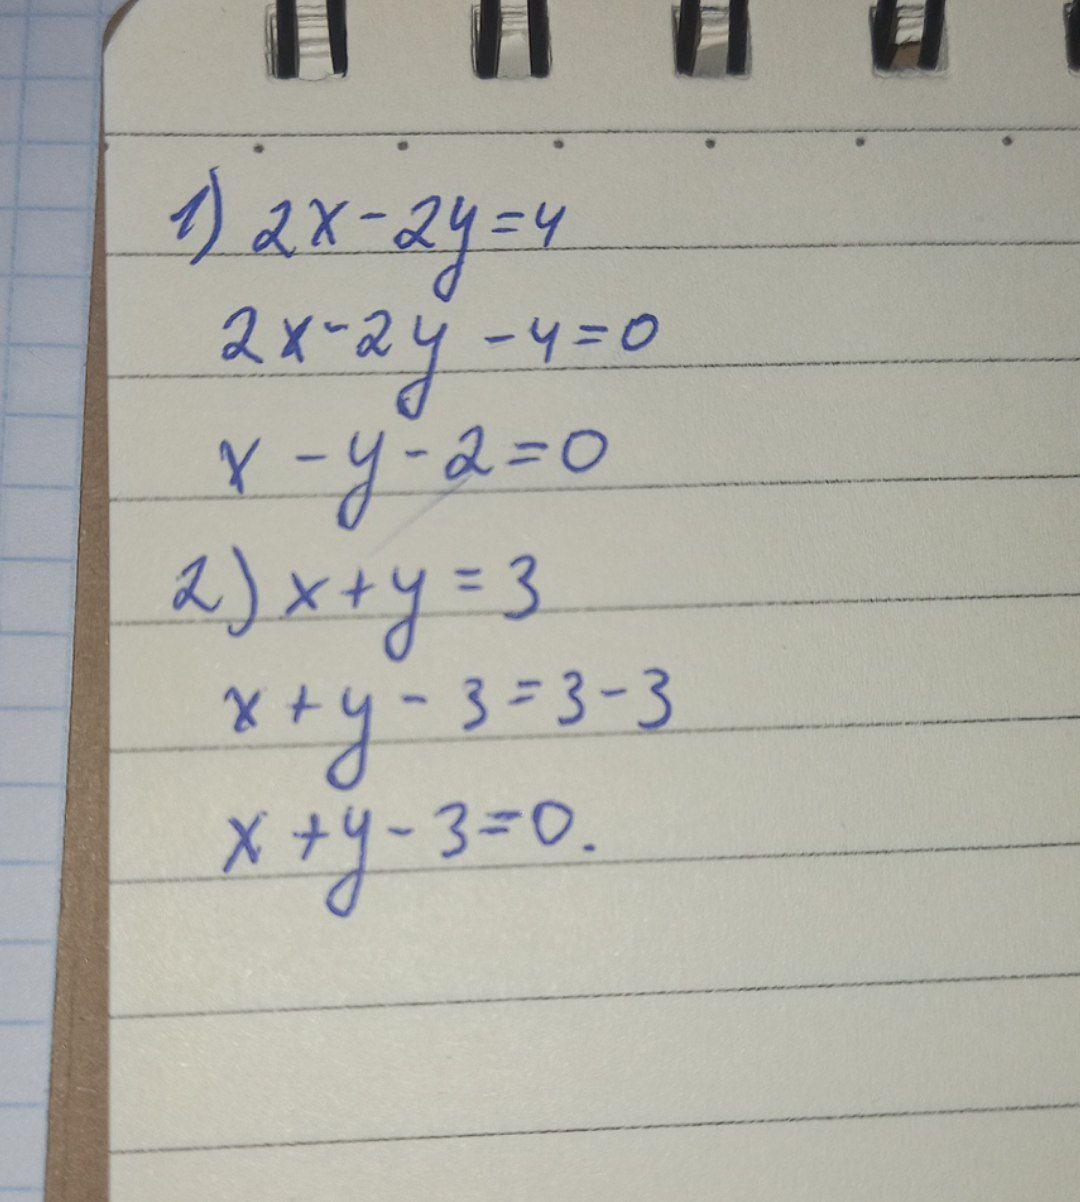 1) 2x-2y=4
2x-2y-4=0
x-y-2=0
2) x+y=3
x+y-3=3-3
x+y-3=0.